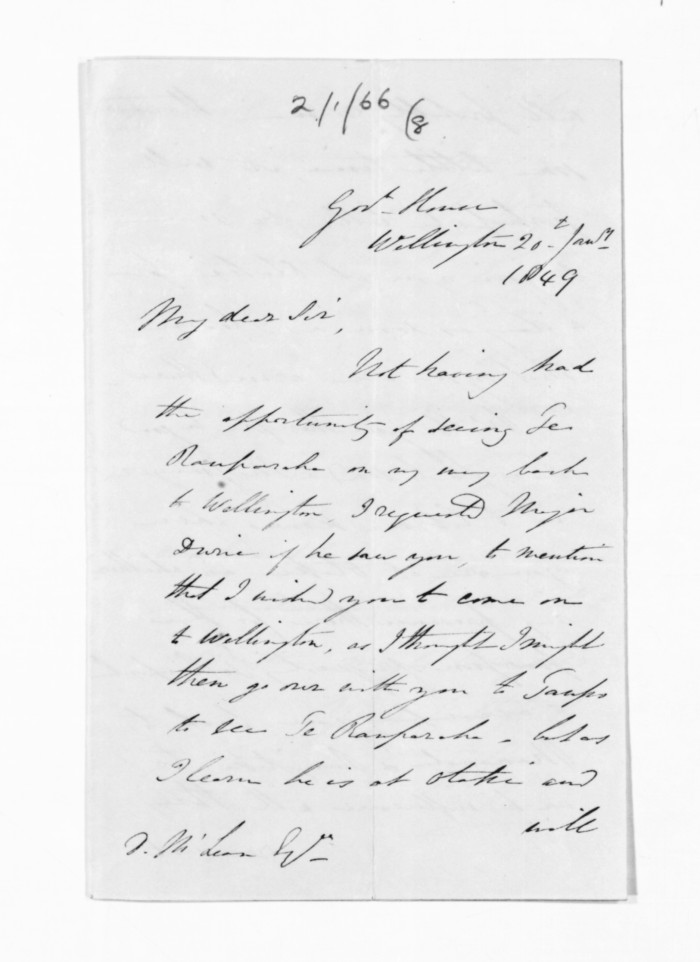 2/1/66 (8
Govt. House
Wellington 20th Jany.
1849
My dear Sir,
Not having had
the opportunity of seeing Te
Rauparaha on my way back
to Wellington, I requested Major
Durie if he saw you, to mention
that I wished you to come on
to Wellington, as I thought I might
then go over with you to Taupo
to see Te Rauparaha - but as
I learn he is at Otaki and
will
D. McLean Esqre.